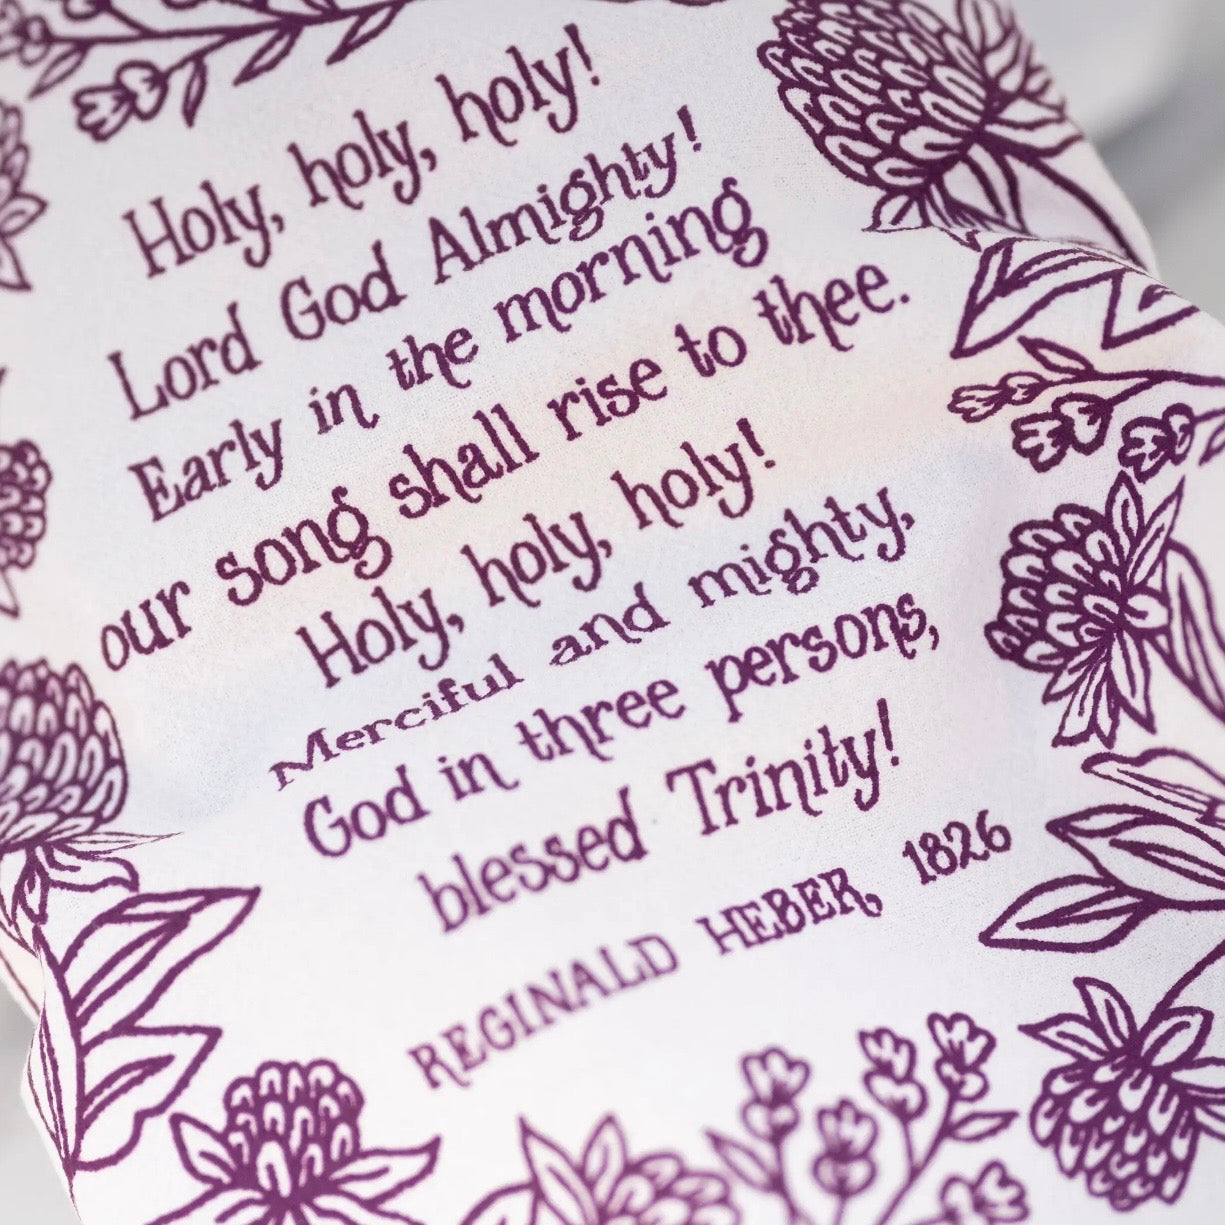 Holy, holy, holy!
Lord God Almighty!
Early in the morning
our song shall rise to thee.
Holy, holy, holy!
Merciful and mighty,
God in three persons,
blessed Trinity!
REGINALD HEBER, 1826